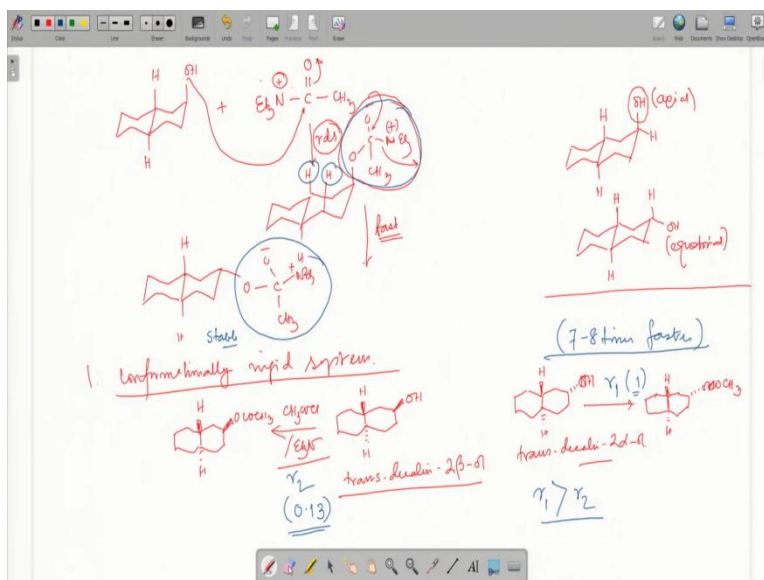 Stylus
Color
Line
Eraser
Backgrounds
Undo
Redo
Pages
Previous
Next
Erase
Board
Web
Documents
Show Desktop
OpenBoard
H
OH
H
+
Et₃N
+
O
C
CH₃
rds
O
O C NEt₃
(+)
CH₃
H H
fast
H
H
O
O C
+
NEt₃
CH₃
Stable
OH (axial)
H
H
H
H
OH
(equatorial)
H
(7-8 times faster)
1. Conformationally rigid system.
H
OCOCH₃
H
CH₃COCl
/Et₃N
r₂
(0.13)
H
OH
H
trans-decalin-2β-ol
H
OH
H
r₁ (1)
H
OCOCH₃
H
trans-decalin-2α-ol
r₁ > r₂